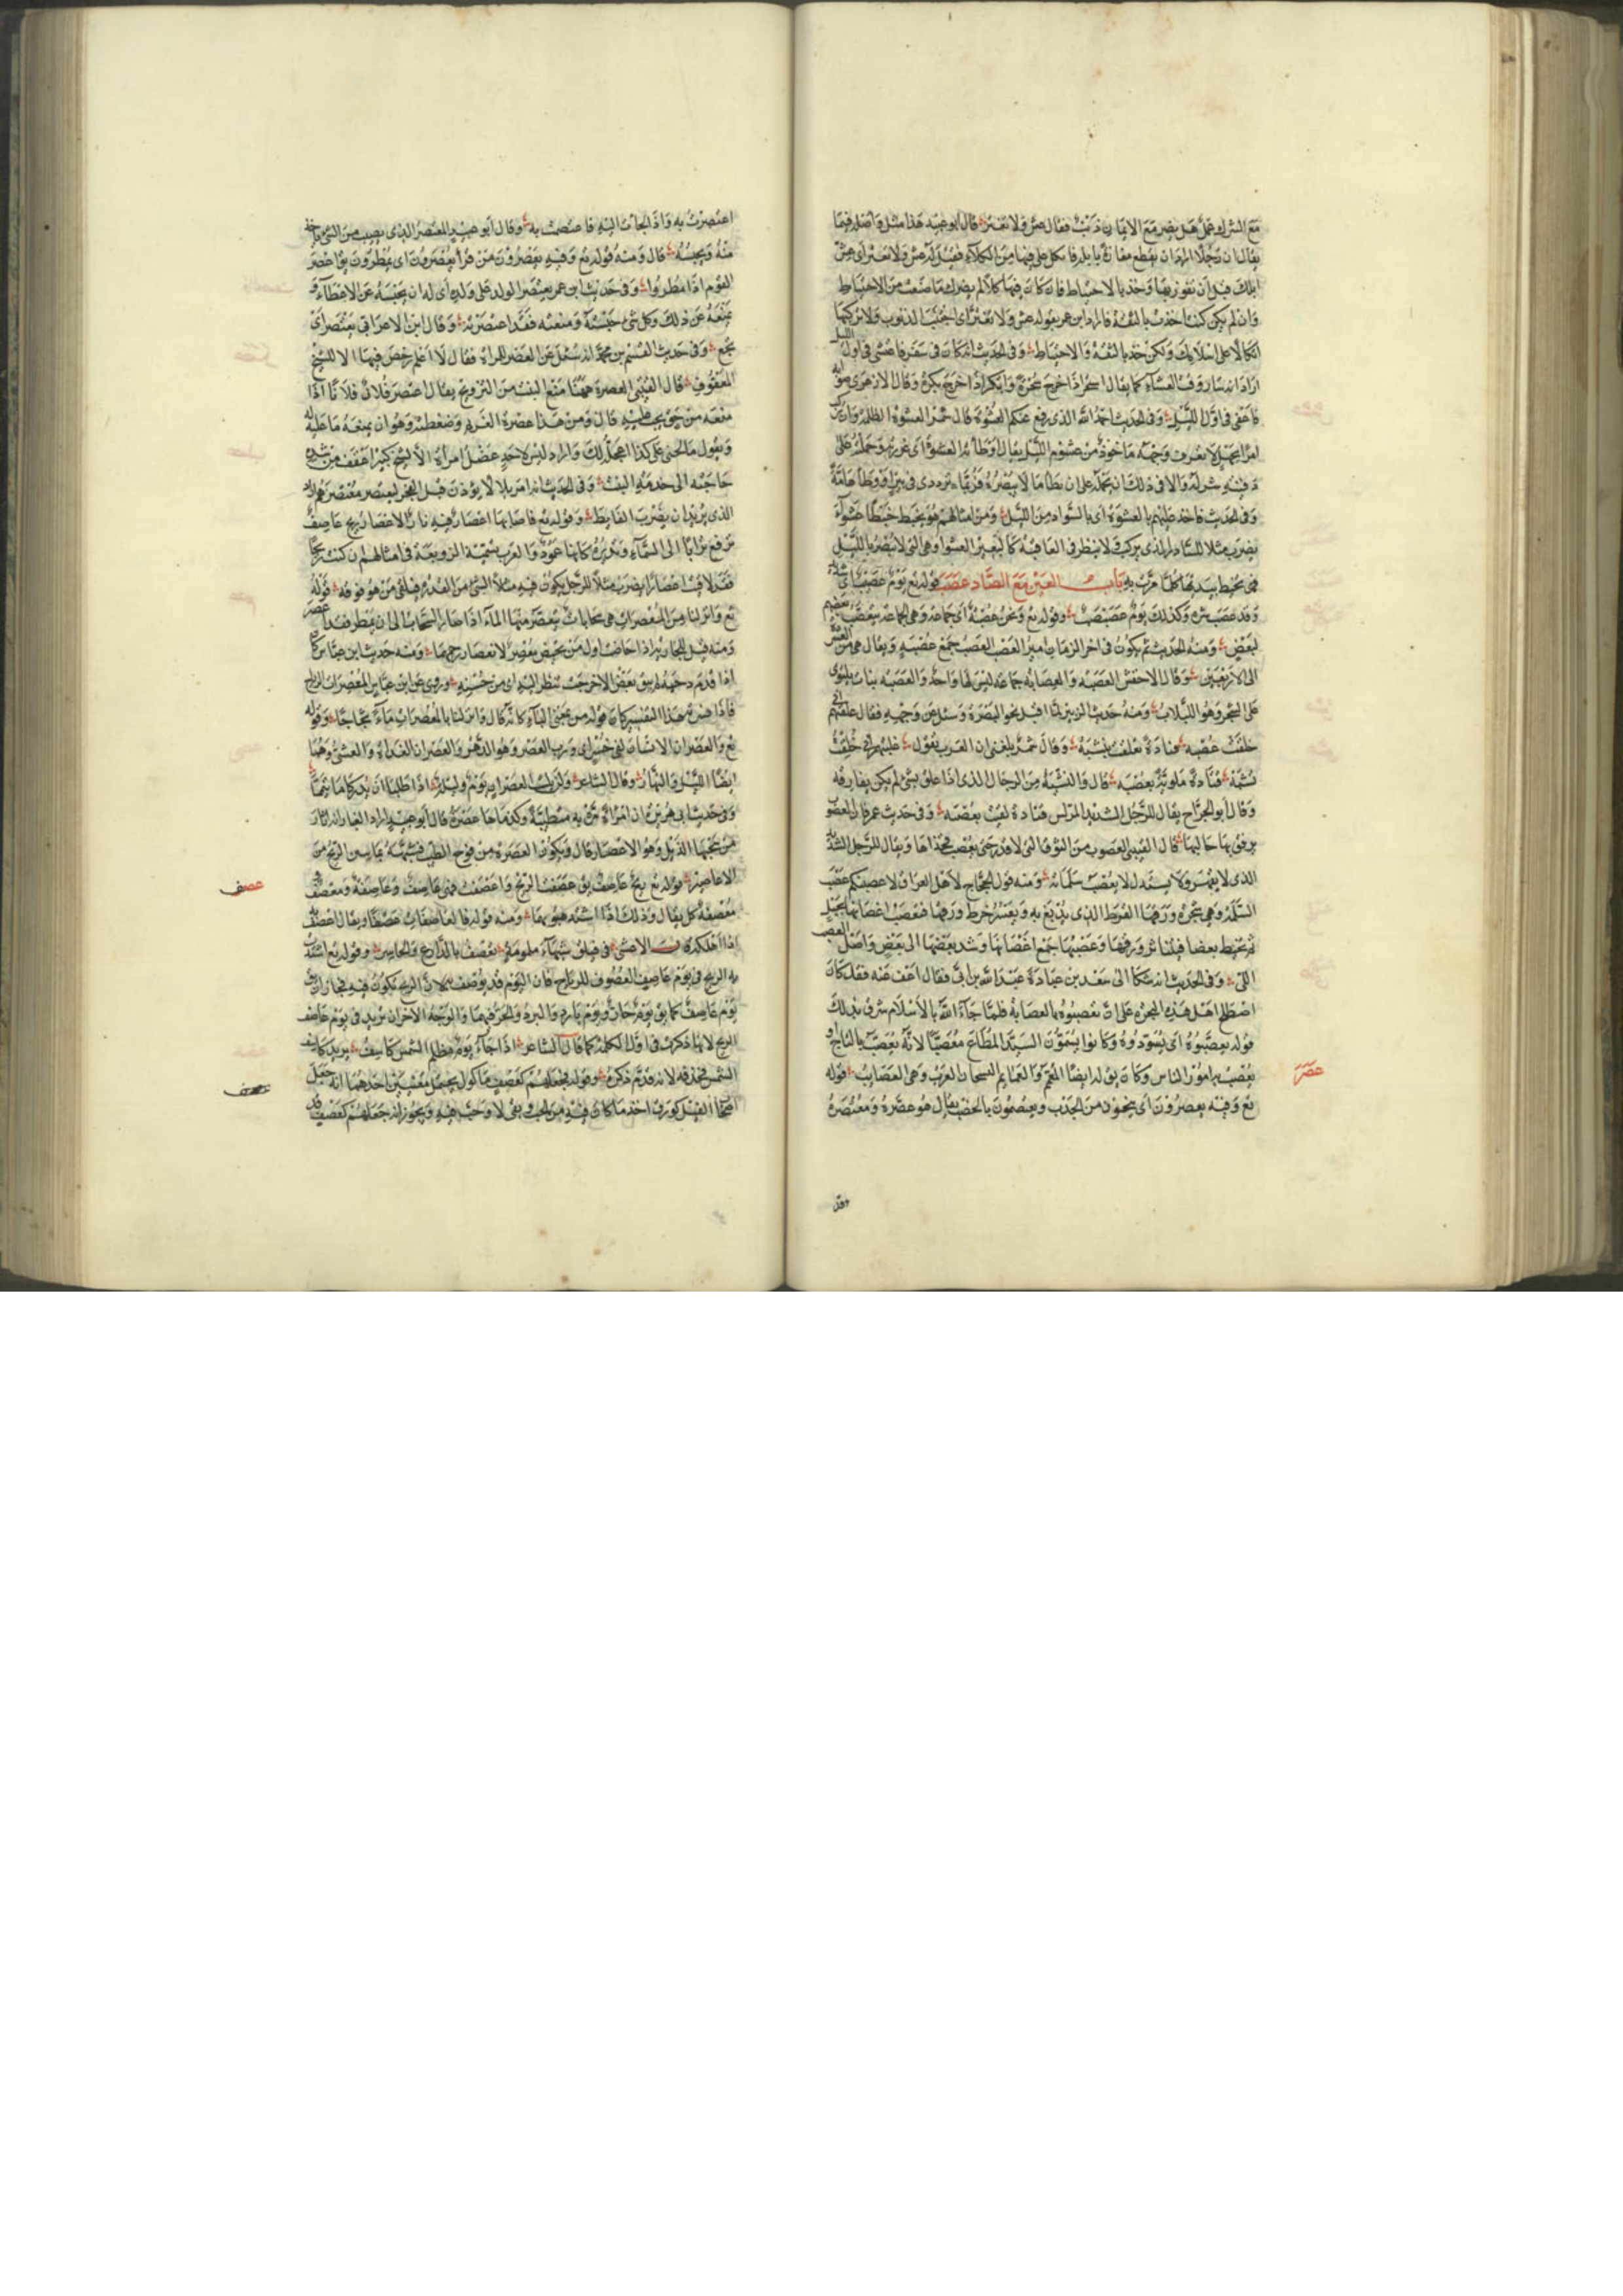 مع الشرك عمل هل يضر مع الايمان ذنب فقال عش ولا تغتر قال ابو عبيد هذا مثل واصله فيما
يقال ان رجلا اراد ان يقطع مفازة بابله فاتكل على فيها من الكلاء فقيل له عش ولا تغتر اى عش
ابلك قبل ان تفوز بها وخذ بالاحتياط فان كان فيها كلأ لم يضرك ما صنعت من الاحتياط
وان لم يكن كنت اخذت بالثقة فاراد ابن عمر بقوله عش ولا تغتر اى اجتنب الذنوب ولا تركبها
اتكالا على اسلامك ولكن خذ بالثقة والاحتياط وفى الحديث انه كان فى سفر فاعتشى فى اول الليل
اراد انه سار وقت العشاء كما يقال استحر اذا خرج سحرة وابتكر اذا خرج بكرة وقال الازهرى صوابه
فاغفى فى اول الليل وفى الحديث احمد الله الذى رفع عنكم العشوة قال شمر العشوة الظلمة وان يركب
امرا بجهل لا يعرف وجهه ماخوذ من عشوة الليل يقال اوطأته العشوة اى غررته وحملته على
وفى الحديث فاخذ عليهم بالعشوة اى بالسواد من الليل ومن امثالهم هو يخبط خبط عشواء
يضرب مثلا للسادر الذى يركب ولا ينظر فى العاقبة كالبعير العشوا وهى التى لا تبصر بالليل
فهى تخبط بيديها كلما مرت به باب العين مع الصاد عصب قوله تع يوم عصيب اى شديد
وقد عصب شره وكذلك يوم عصبصب وقوله تع ونحن عصبة اى جماعة وهى الجماعة يتعصب بعضهم
لبعض ومنه الحديث ثم يكون فى اخر الزمان امير العصب العصب جمع عصبة ويقال هى من العشرة
الى الاربعين وقال الاخفش العصبة والعصابة جماعة ليس لها واحد والعصبة نبات يلتوى
على الشجر وهو اللبلاب ومنه حديث الزبير لما اقبل نحو البصرة وسئل عن وجهه فقال علقتهم انى
خلقت عصبه قتادة تعلقت بنشبة وقال شمر بلغنى ان العرب تقول غلبتهم انى خلقت
نشبة قتادة ملوية بعصبة قال والنشبة من الرجال الذى اذا علق بشئ لم يكن يفارقه
وقال ابو الجراح يقال للرجل الشديد المراس قتادة لفيت بعصبة وفى حديث عمر فان العصوب
يرفق بها حالبها قال القتيبى العصوب من النوق التى لا تدر حتى يعصب فخذاها ويقال للرجل الشديد
الذى لا يقهر ولا يستذل لا يعصب سلماته ومنه قول الحجاج لاهل العراق لاعصبنكم عصب
السلمة وهى شجرة ورقها القرظ الذى يدبغ به ويعسر خرط ورقها فتعصب اغصانها بحبل
ثم تخبط بعصا فيتناثر ورقها وعصبها جمع اغصانها وشد بعضها الى بعض واصل العصب
اللى وفى الحديث انه شكا الى سعد بن عبادة عبد الله بن ابى فقال اعف عنه فقد كان
اصطلح اهل هذه البحرة على ان يعصبوه بالعصابة فلما جاء الله بالاسلام شرق بذلك
قوله يعصبوه اى يسودوه وكانوا يسمون السيد المطاع معصبا لانه يعصب بالتاج او
يعصب به امور الناس وكان يق له ايضا المعمم والعمايم تيجان العرب وهى العصايب قوله
تع وفيه يعصرون اى ينجون من الجدب ويعتصمون بالخصب يقال هو عصره ومعتصره
وقد
عصر
اعتصرت به واذا لجات اليه فاعتصمت به وقال ابو عبيد المعتصر الذى يصيب من الشئ ياخذ
منه ويحبسه قال ومنه قوله تع وفيه يعصرون من قرأ يعصرون اى يمطرون يق اعصر
القوم اذا مطروا وفى حديث ابن عمر يعتصر الوالد على ولده اى له ان يحبسه عن الاعطاء و
يمنعه عن ذلك وكل شئ حبسته ومنعته فقد اعتصرته وقال ابن الاعرابى يعتصر اى
يرتجع وفى حديث القسم بن محمد انه سئل عن العصر للمراة فقال لا اعلم رخص فيها الا للشيخ
المعقوف قال القتيبى العصرة ههنا منع البنت من التزويج يقال اعتصر فلان فلانا اذا
منعه من حق يجب عليه قال ومن هذا عصرة الغريم وضغطته وهو ان يمنعه ما عليه
حاجته الى خدمة البنت وفى الحديث انه امر بلالا ان يؤذن قبل الفجر ليعتصر معتصرهم اراد
الذى يريد ان يضرب الغايط وقوله تع فاصابها اعصار فيه نار الاعصار ريح عاصف
ترفع ترابا الى السماء وتديره كانها عمود والعرب تسميه الزوبعة فى امثالهم ان كنت ريحا
فقد لاقيت اعصارا يضرب مثلا للرجل يكون فيه مثلا الشئ من القدرة فيلقى من هو فوقه قوله
تع وانزلنا من المعصرات هى سحابات يعتصر منها الماء اذا صار السحاب الى ان يمطر فقد اعصر
ومنه قيل للجارية اذا حاضت اول من تحيض معصر لانعصار رحمها ومنه حديث ابن عباس كان
اذا قدم دحية لم يبق معصر الا خرجت تنظر اليه اى من حسنه وروى عن ابن عباس المعصرات الرياح
فاذا فسرته هذا التفسير كان قوله من بمعنى الباء كانه قال وانزلنا بالمعصرات ماء ثجاجا وقوله
تع والعصر ان الانسان لفى خسر اى ورب العصر وهو الدهر والعصران الغداة والعشى وهما
ايضا الليل والنهار وقال الشاعر ولن يلبث العصران يوم وليلة اذا طلبا ان يدركا ما تيمما
وفى حديث ابى هريرة ان امراة مرت به متطيبة وكذيلها عصرة قال ابو عبيد اراد الغبار انه اثار
من سحبها الذيل وهو الاعصار قال وتكون العصرة من فوح الطيب فشبهه بما يسمى الريح من
الاعاصير قوله تع ريح عاصف يق عصفت الريح واعصفت فهى عاصف وعاصفة ومعصف
معصفة كل يقال وذلك اذا اشتد هبوبها ومنه قوله فالعاصفات عصفا ويقال اعصفه
اذا اهلكه الاعشى فى فيلق شهباء ملمومة تعصف بالدارع والحاسر وقوله تع اشتدت
به الريح فى يوم عاصف العصوف للرياح فان اليوم قد يوصف
يوم عاصف كما يق يوم حار ويوم بارد والبرد والحر فيهما والوجه الاخر ان تريد فى يوم عاصف
الريح لانها ذكرت فى اول الكلمة كما قال الشاعر اذا جاء يوم مظلم الشمس كاسف يريد كاسف
الشمس فحذفه لانه قدم ذكره وقوله فجعلهم كعصف ماكول يحتمل معنيين احدهما انه جعل
اصحاب الفيل كورق اخذ ما كان فيه من الحب وبقى لا حب فيه ويجوز انه جعلهم كعصف قد
عصف